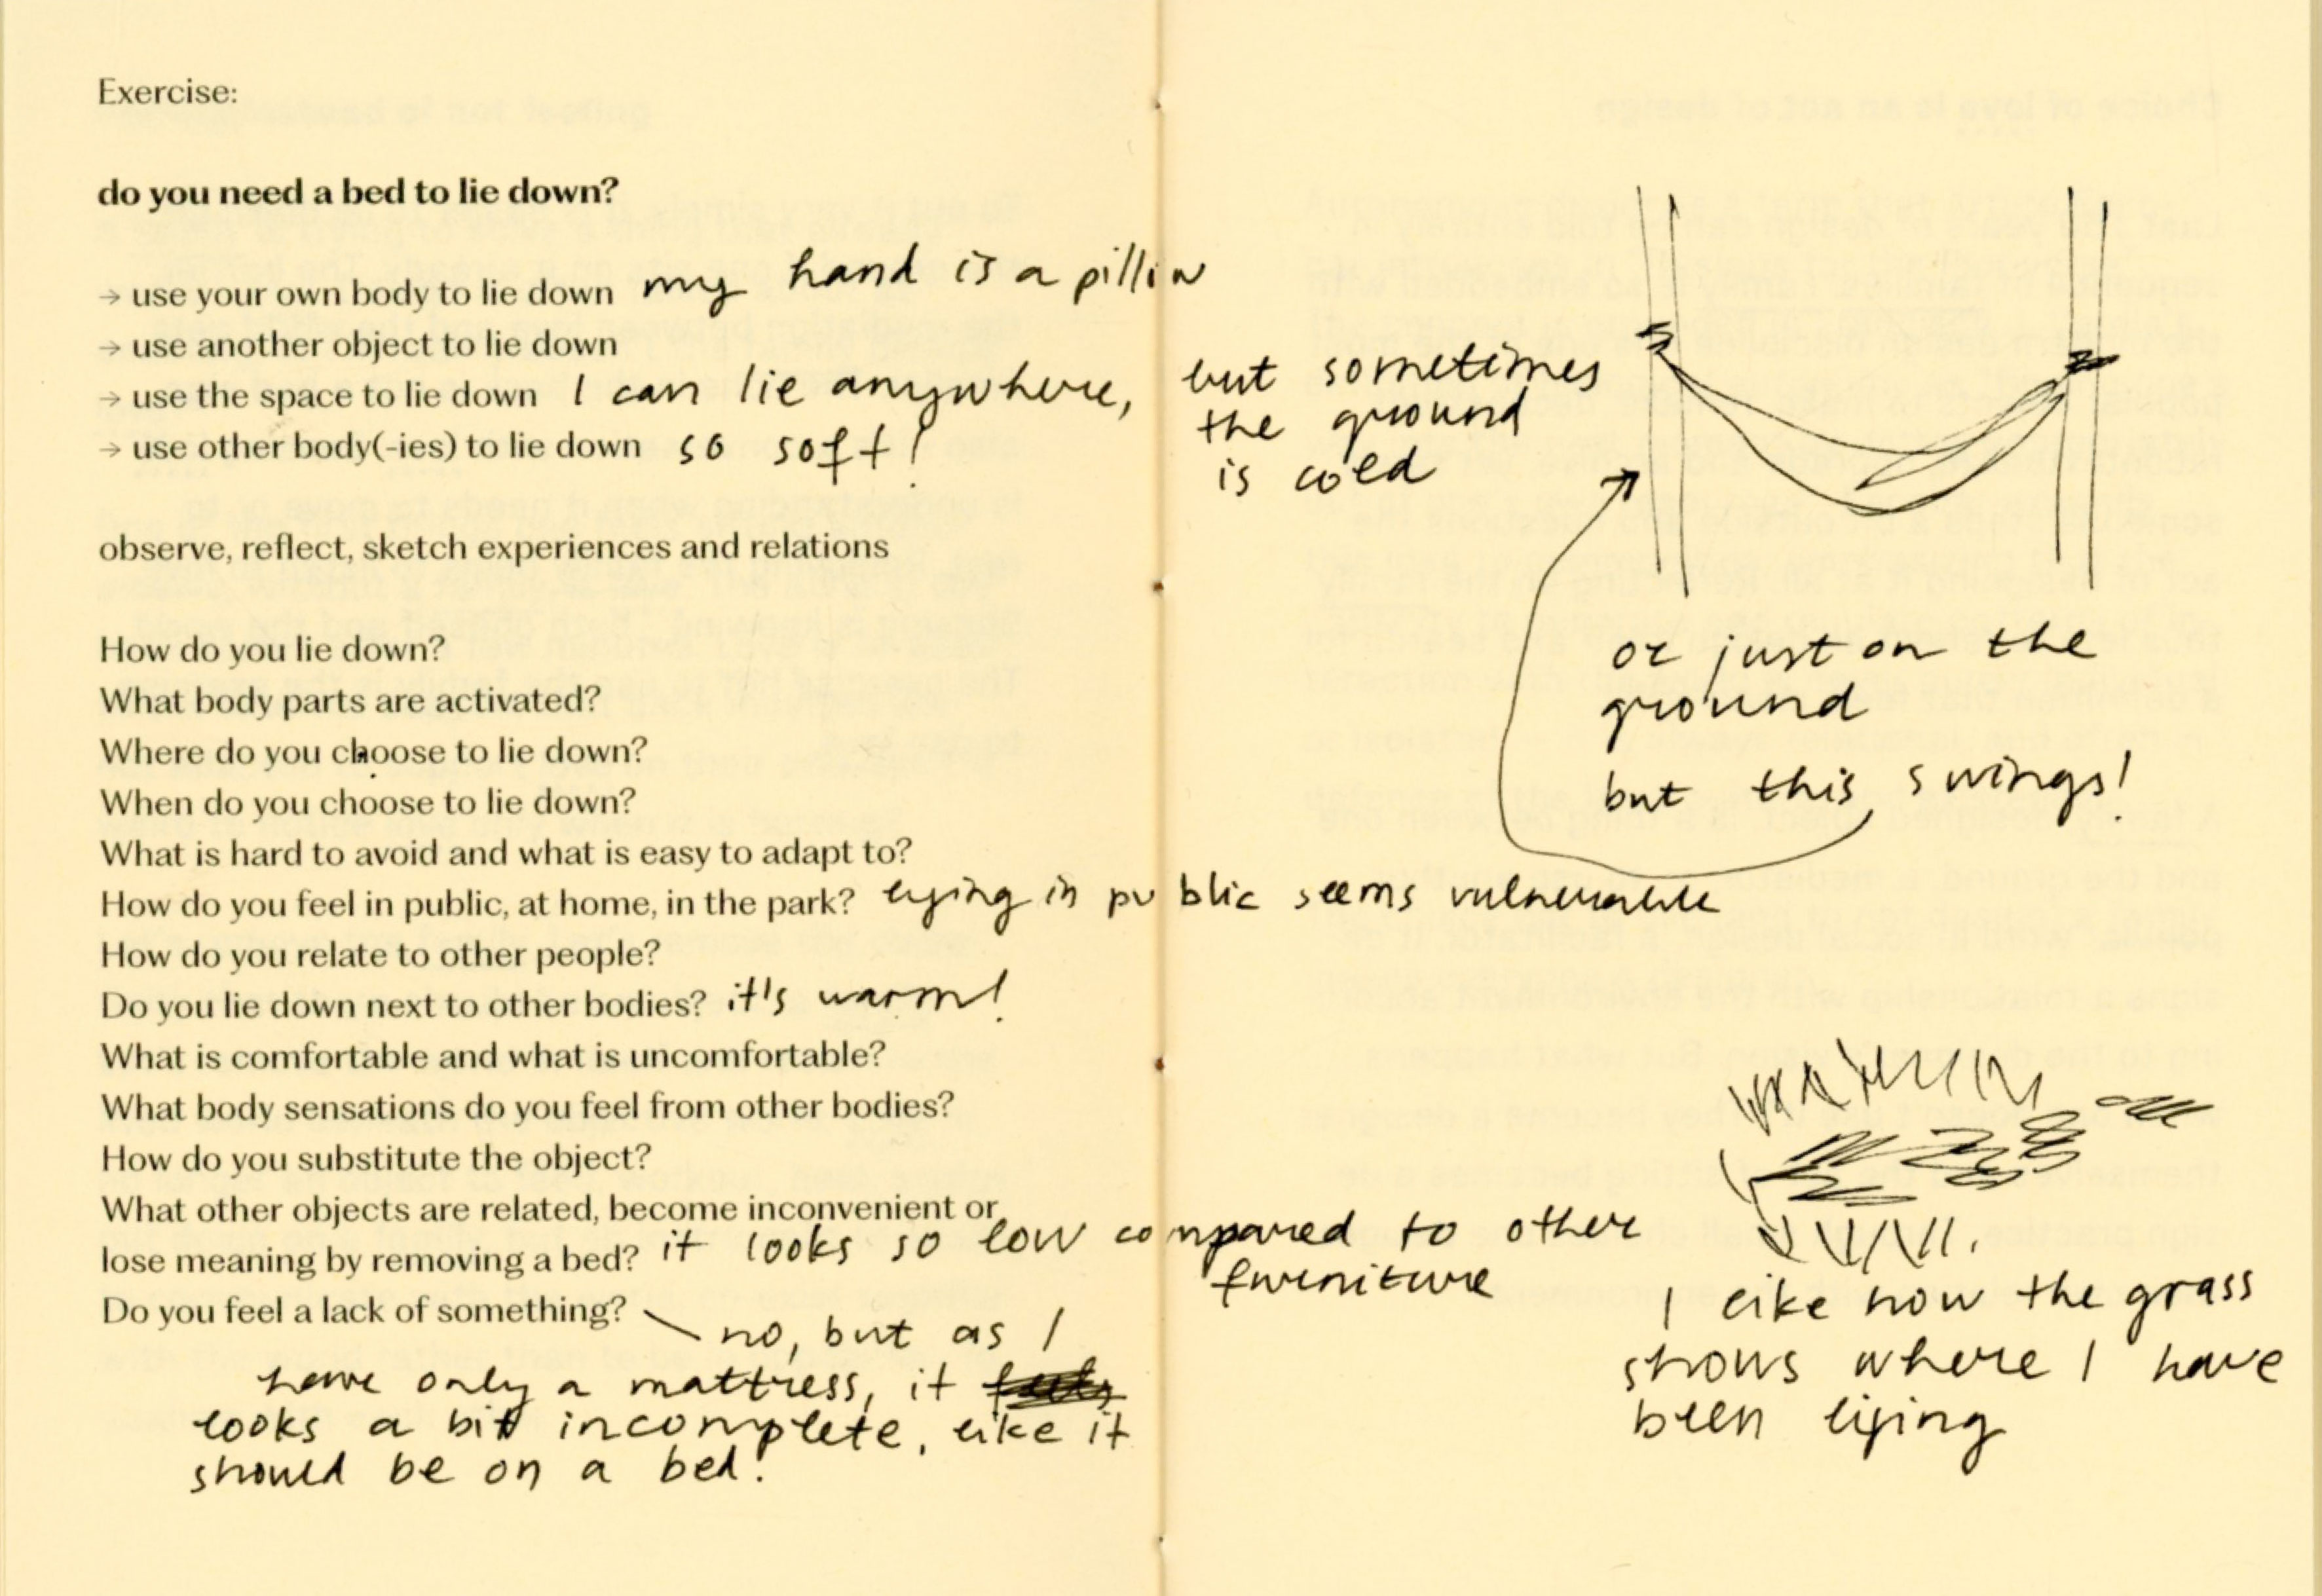 Exercise:
do you need a bed to lie down?
→ use your own body to lie down my hand is a pillow
→ use another object to lie down
→ use the space to lie down I can lie anywhere, but sometimes
the ground
is cold
→ use other body(-ies) to lie down so soft!
observe, reflect, sketch experiences and relations
How do you lie down?
What body parts are activated?
Where do you choose to lie down?
When do you choose to lie down?
What is hard to avoid and what is easy to adapt to?
How do you feel in public, at home, in the park? lying in public seems vulnerable
How do you relate to other people?
Do you lie down next to other bodies? it's warm!
What is comfortable and what is uncomfortable?
What body sensations do you feel from other bodies?
How do you substitute the object?
What other objects are related, become inconvenient or
lose meaning by removing a bed? it looks so low compared to other
furniture
Do you feel a lack of something?
no, but as I
have only a mattress, it
looks a bit incomplete, like it
should be on a bed.
or just on the
ground
but this swings!
I like how the grass
shows where I have
been lying